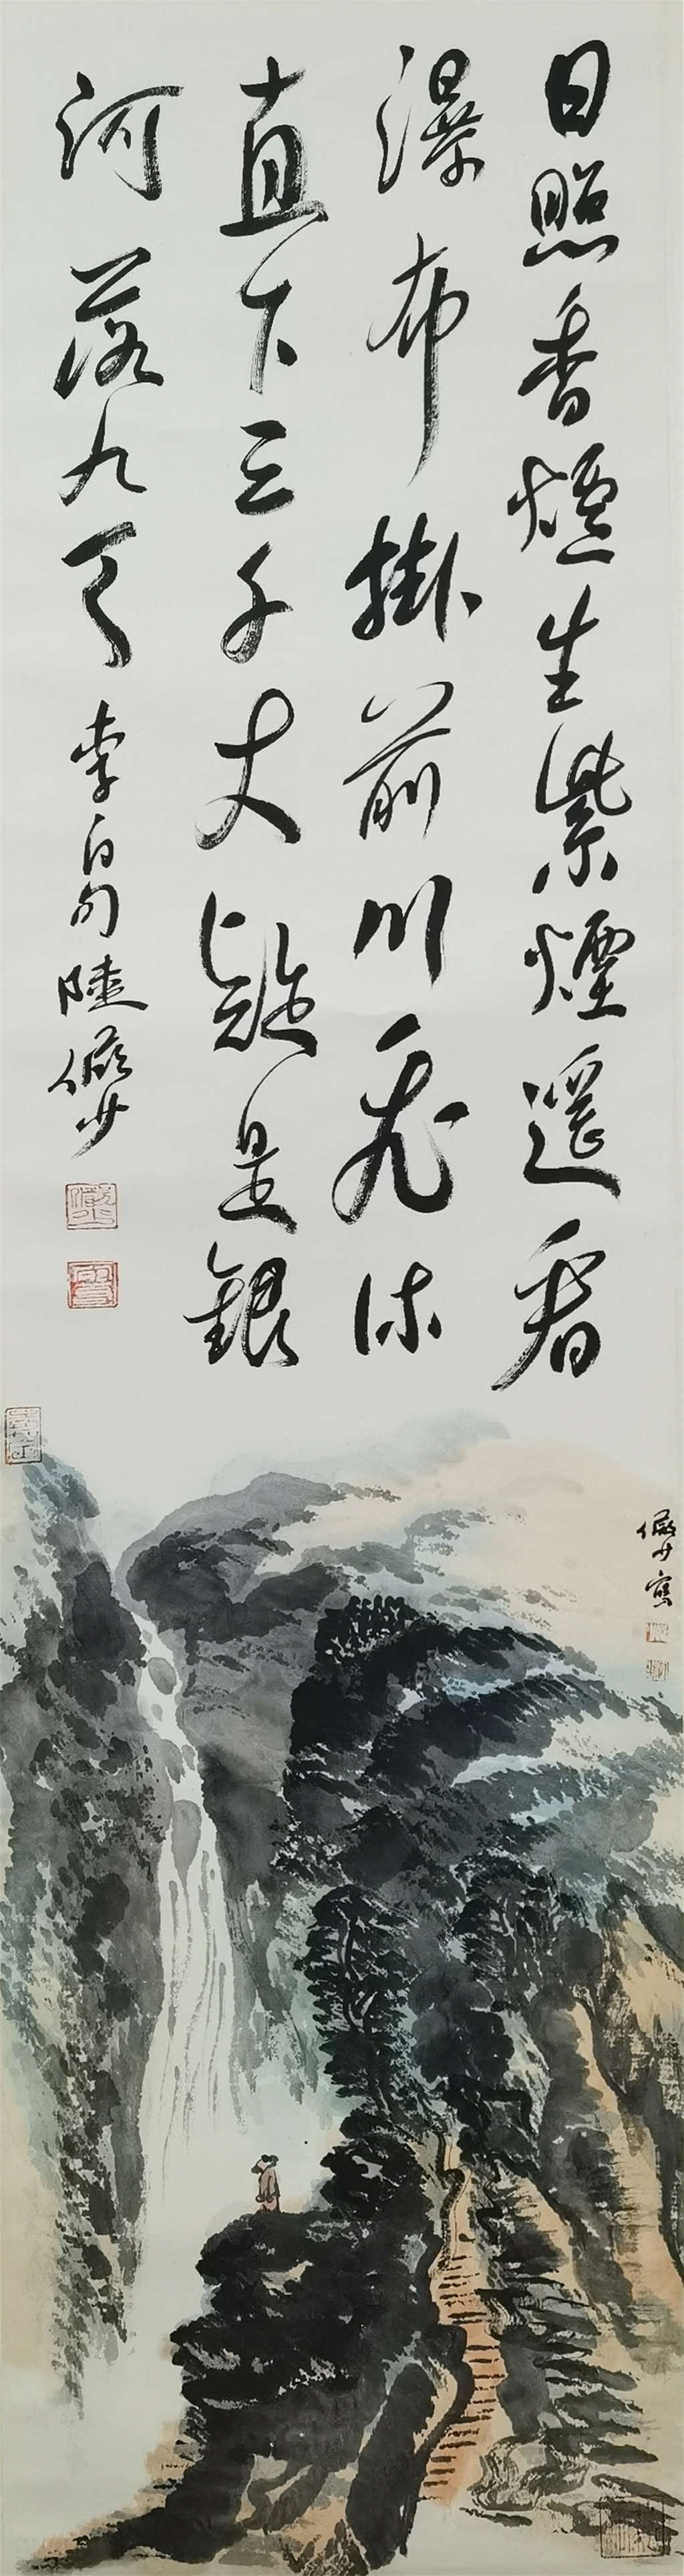 日照香爐生紫煙遙看
瀑布掛前川飛流
直下三千丈疑是銀
河落九天 李白句 陸儼少
儼少寫